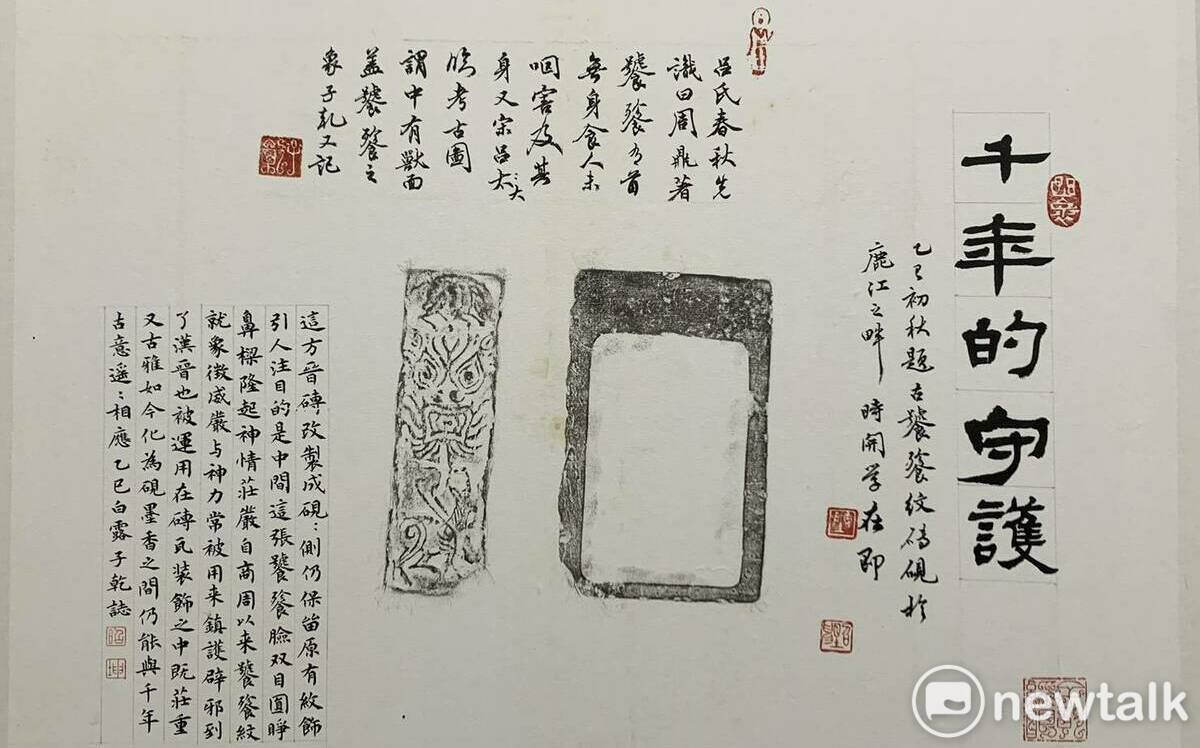 千年的守護
乙巳初秋題古饕餮紋磚硯於
鹿江之畔 時開学在即
呂氏春秋先
識曰周鼎著
饕餮有首
無身食人未
咽害及其
身又宗呂太大
臨考古圖
謂中有獸面
蓋饕餮之
象子乾又記
這方晉磚改製成硯:側仍保留原有紋飾
引人注目的是中間這張饕餮臉双目圓睜
鼻樑隆起神情莊嚴自商周以来饕餮紋
就象徵威嚴与神力常被用来鎮護辟邪到
了漢晉也被運用在磚瓦装飾之中既莊重
又古雅如今化為硯墨香之間仍能與千年
古意遥:相應乙巳白露子乾誌
newtalk